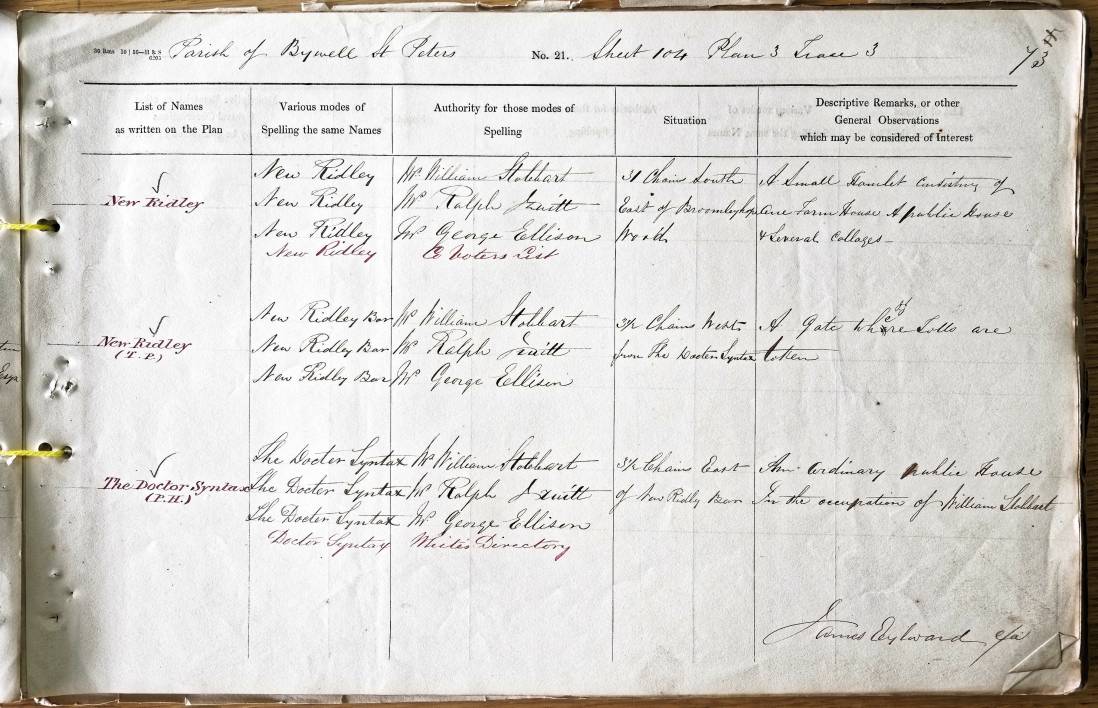 Parish of Bywell St Peters No. 21. Sheet 104 Plan 3 Trace 3
List of Names
as written on the Plan
Various modes of
Spelling the same Names
Authority for those modes of
Spelling
Situation
Descriptive Remarks, or other
General Observations
which may be considered of Interest
New Ridley
New Ridley
New Ridley
New Ridley
New Ridley
Mr William Stobbart
Mr Ralph
Mr George Ellison
Co Voters List
31 Chains South
East of Broomleyhope
Wood
A Small Hamlet Consisting of
One Farm House A public House
& Several Cottages -
New Ridley
(T.P.)
New Ridley Bar
New Ridley Bar
New Ridley Bar
Mr William Stobbart
Mr Ralph
Mr George Ellison
3½ Chains West
from The Doctor Syntax
A Gate where Tolls are
taken
The Doctor Syntax
(P.H.)
The Doctor Syntax
The Doctor Syntax
The Doctor Syntax
Doctor Syntax
Mr William Stobbart
Mr Ralph
Mr George Ellison
Whites Directory
3½ Chains East
of New Ridly Bar
An Ordinary public House
In the occupation of William Stobbart
James Eylward c/a